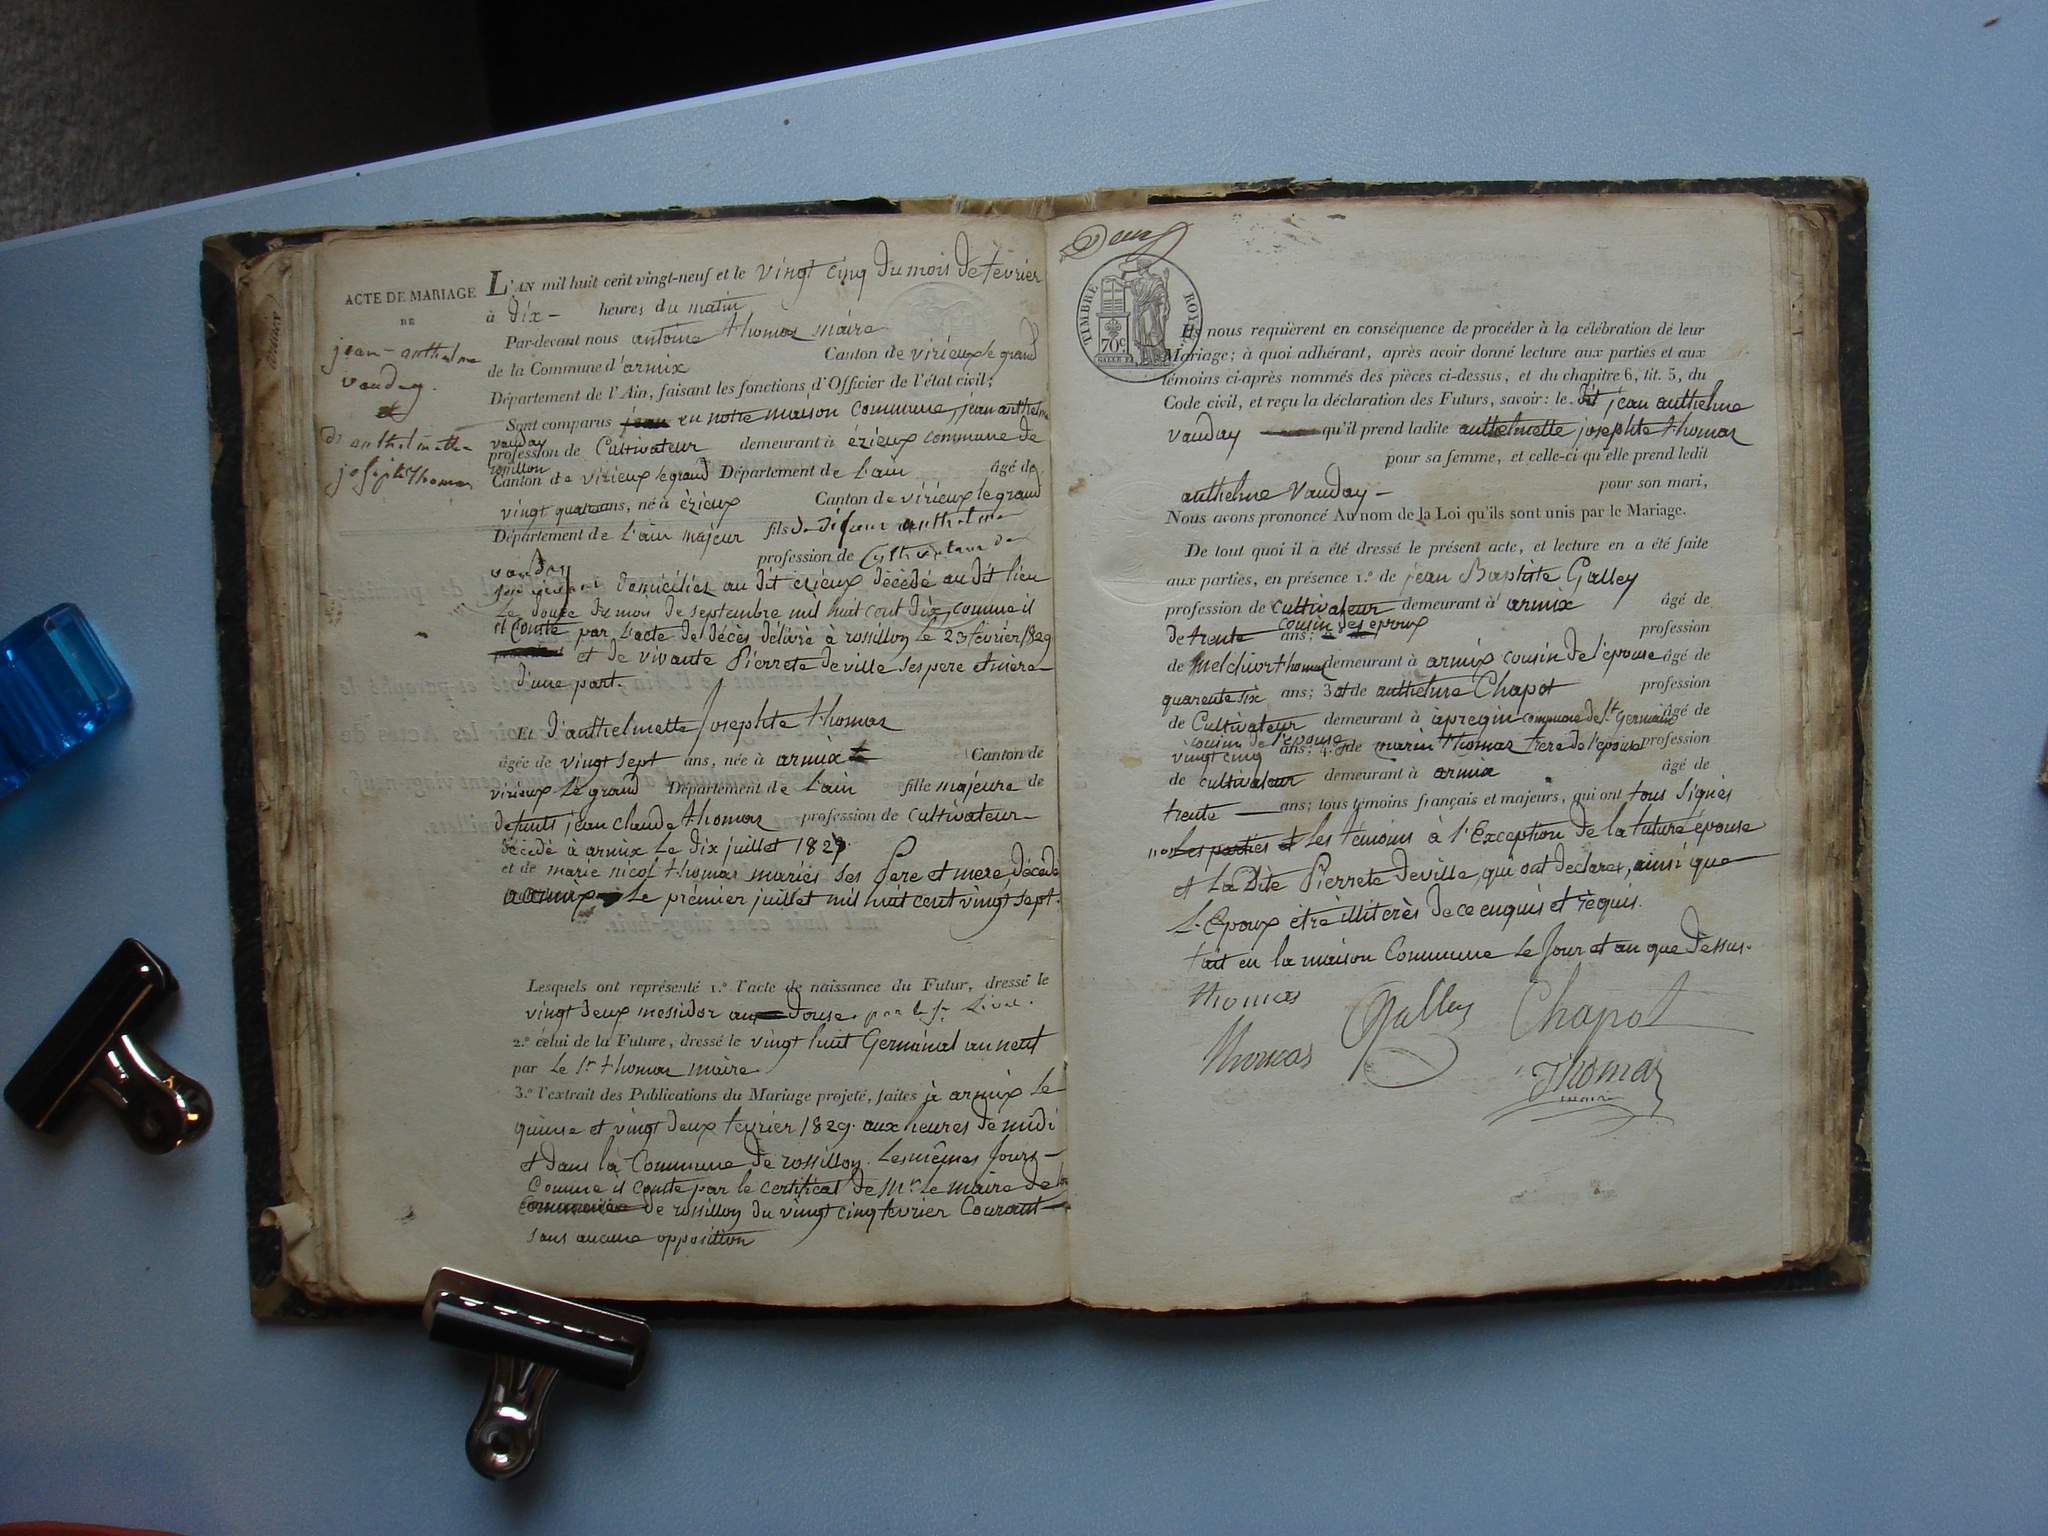 ACTE DE MARIAGE
DE
jean-anthelme
vauday.
et
d'anthelmette
josephte thomas
L'AN mil huit cent vingt-neuf et le vingt cinq du mois de fevrier
à dix - heures du matin
Par-devant nous antoine thomas maire
de la Commune d'armix Canton de virieux le grand
Département de l'Ain, faisant les fonctions d'Officier de l'état civil;
Sont comparus en notre maison commune, jean anthelme
vauday
profession de Cultivateur demeurant à èzieux commune de
rossillon
Canton de virieux le grand Département de L'ain âgé de
vingt quatre ans, né à èzieux Canton de virieux le grand
Département de L'ain majeur fils de défunt anthelme
vauday profession de Cultivateur de
domiciliés au dit èzieux décédé au dit lieu
Le douze du mois de septembre mil huit cent dix, comme il
Conste par l'acte de décès délivré à rossillon le 23 fevrier 1829
et de vivante Pierrete deville ses pere et mère
d'une part.
Et d'anthelmette Josephte thomas
âgée de vingt sept ans, née à armix Canton de
virieux Le grand Département de L'ain fille majeure de
defunts jean claude thomas profession de Cultivateur
décédé à armix Le dix juillet 182
et de marie nicol thomas mariés ses Pere et mere, décédé
a armix Le prémier juillet mil huit cent vingt sept.
Lesquels ont représenté 1.° l'acte de naissance du Futur, dressé le
vingt deux messidor an douse. par le sr
2.° célui de la Future, dressé le vingt huit Germinal an neuf
par Le Sr thomas maire
3.° l'extrait des Publications du Mariage projeté, faites à armix Le
quinse et vingt deux fevrier 1829. aux heures de midi
et dans la Commune de rossillon. Les mêmes Jours -
Comme il conste par le certificat de Mr Le maire de
de rossillon du vingt cinq fevrier Courant
sans aucune opposition
Deux
TIMBRE ROYAL
70c
Ils nous requièrent en conséquence de procéder à la célébration de leur
Mariage; à quoi adhérant, après avoir donné lecture aux parties et aux
témoins ci-après nommés des pièces ci-dessus, et du chapitre 6, tit. 5, du
Code civil, et reçu la déclaration des Futurs, savoir: le dit jean anthelme
vauday qu'il prend ladite anthelmette josephte thomas
pour sa femme, et celle-ci qu'elle prend ledit
anthelme Vauday - pour son mari,
Nous avons prononcé Au nom de la Loi qu'ils sont unis par le Mariage.
De tout quoi il a été dressé le présent acte, et lecture en a été faite
aux parties, en présence 1.° de jean Baptiste Galley
profession de cultivateur demeurant à armix âgé de
de trente ans; cousin des epoux profession
de Melchior thomas demeurant à armix cousin de l'épouse âgé de
quarente six ans; 3° de anthelme Chapot profession
de Cultivateur demeurant à apregin commune de St Germain âgé de
cousin de l'épouse
vingt cinq ans; 4° de marin thomas frere de l'epouse profession
de cultivateur demeurant à armix âgé de
trente ans; tous témoins français et majeurs, qui ont tous signés
Les parties et Les témoins à l'Exception de la future épouse
et La Dite Pierrete deville, qui ont declarés, ainsi que
L'Epoux être illiterés de ce enquis et réquis.
fait en la maison Commune Le Jour et an que dessus.
Thomas Galley Chapot
Thomas Thomas
maire